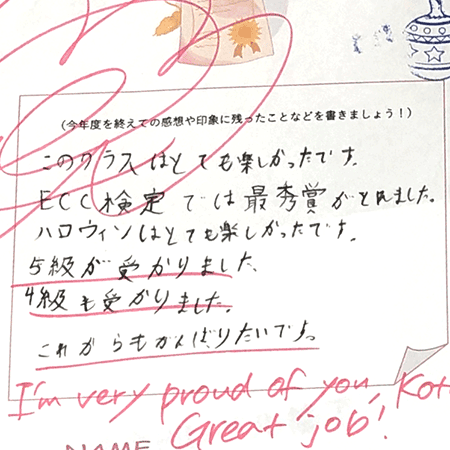 (今年度を終えての感想や印象に残ったことなどを書きましょう!)
このクラスはとても楽しかったです。
ECC検定では最秀賞がとれました。
ハロウィンはとても楽しかったです。
5級が受かりました、
4級も受かりました。
これからもがんばりたいです。
I'm very proud of you,
Great job!
NAME